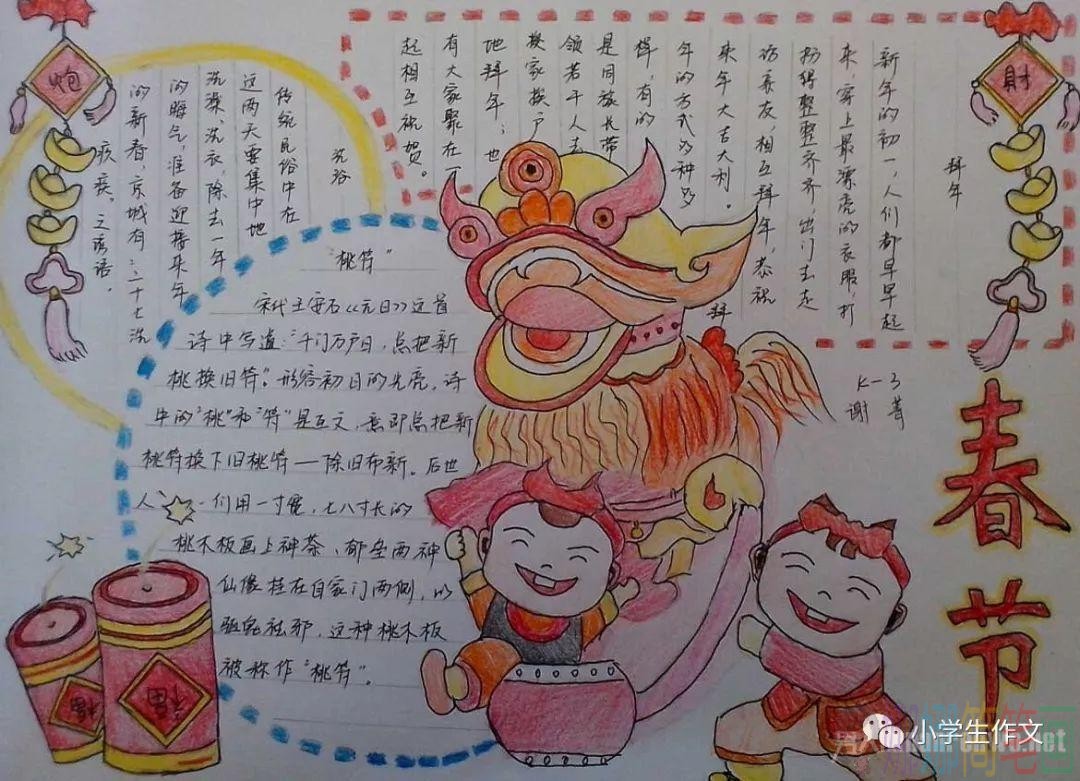 春节
拜年
新年的初一,人们都早早起
来,穿上最漂亮的衣服,打
扮得整整齐齐,出门去走
访亲友,相互拜年,恭祝
来年大吉大利。拜
年的方式多种多
样,有的
是同族长带
领若干人去
挨家挨户
地拜年;也
有大家聚在一
起相互祝贺。
K-3
谢菁
洗浴
传统民俗中在
这两天要集中地
洗澡、洗衣,除去一年
的晦气,准备迎接来年
的新春,京城有:二十七洗
疚疾。之谚语。
“桃符”
宋代王安石《元日》这首
诗中写道:“千门万户日,总把新
桃换旧符”。形容初日的光亮。诗
中的“桃”和“符”是互文,意即总把新
桃符换下旧桃符—除旧布新。后世
人们用一寸宽,七八寸长的
桃木板画上神荼、郁垒两种
仙像挂在自家门两侧,以
驱鬼祛邪,这种桃木板
被称作“桃符”。
炮
财
福
福
小学生作文